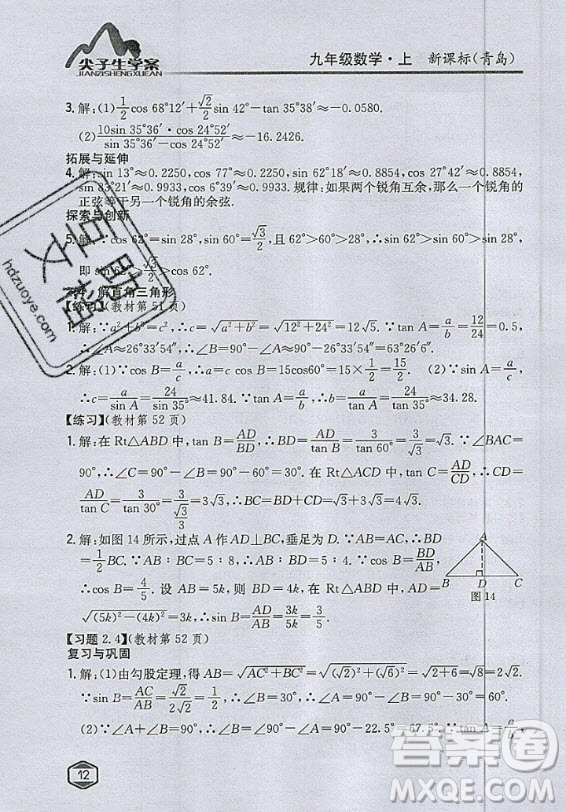 尖子生学案
JIANZISHENGXUEAN
九年级数学·上 新课标(青岛)
3.解:(1)1/2 cos 68°12′+√2/5 sin 42°-tan 35°≈-0.0580.
(2)(10sin 35°36′·cos 24°52′)/(sin 35°36′-cos 24°52′)≈-16.2426.
拓展与延伸
4.解:sin 13°≈0.2250,cos 77°≈0.2250,sin 62°18′≈0.8854,cos 27°42′≈0.8854,
sin 83°21′≈0.9933,cos 6°39′≈0.9933.规律:如果两个锐角互余,那么一个锐角的
正弦等于另一个锐角的余弦.
探索与创新
5.解:∵cos 62°=sin 28°,sin 60°=√3/2,且 62°>60°>28°,∴sin 62°>sin 60°>
sin 28°,即 sin 62°>√3/2>cos 62°.
解直角三角形
【练习】(教材第51页)
1.解:∵a²+b²=c²,∴c=√(a²+b²)=√(12²+24²)=12√5.∵tan A=a/b=12/24=0.5,
∴∠A≈26°33′54″,∴∠B=90°-∠A≈90°-26°33′54″=63°26′6″.
2.解:(1)∵cos B=a/c,∴a=c·cos B=15cos60°=15×1/2=15/2. (2)∵sin A=a/c,
∴c=a/sin A=24/sin 35°≈41.84.∵tan A=a/b,∴b=a/tan A=24/tan 35°≈34.28.
【练习】(教材第52页)
1.解:在 Rt△ABD 中,tan B=AD/BD,∴BD=AD/tan B=3/tan 60°=√3.∵∠BAC=
90°,∴∠C=90°-∠B=90°-60°=30°.在 Rt△ACD 中,tan C=AD/CD,∴CD=
AD/tan C=3/tan 30°=3√3,∴BC=BD+CD=√3+3√3=4√3.
2.解:如图 14 所示,过点 A 作 AD⊥BC,垂足为 D.∵AB=AC,∴BD=
1/2 BC.∵AB∶BC=5∶8,∴AB∶BD=5∶4,∴cos B=BD/AB=
4/5,∴cos B=4/5.设 AB=5k,则 BD=4k,∴AD=√(AB²-BD²)=
√((5k)²-(4k)²)=3k,∴sin B=AD/AB=3k/5k=3/5,tan B=AD/BD=3/4.
A
B
D
C
图 14
【习题 2.4】(教材第52页)
复习与巩固
1.解:(1)由勾股定理,得 AB=√(AC²+BC²)=√((√2)²+(√6)²)=√8=2√2.
∵sin B=AC/AB=√2/2√2=1/2,∴∠B=30°,∴∠A=90°-∠B=90°-30°=60°.
(2)∵∠A+∠B=90°,∴∠B=90°-∠A=90°-22.5°=67.5°.∵tan A=a/b,
12
互助文档
hdzuoye.com
答案圈
MXQE.COM